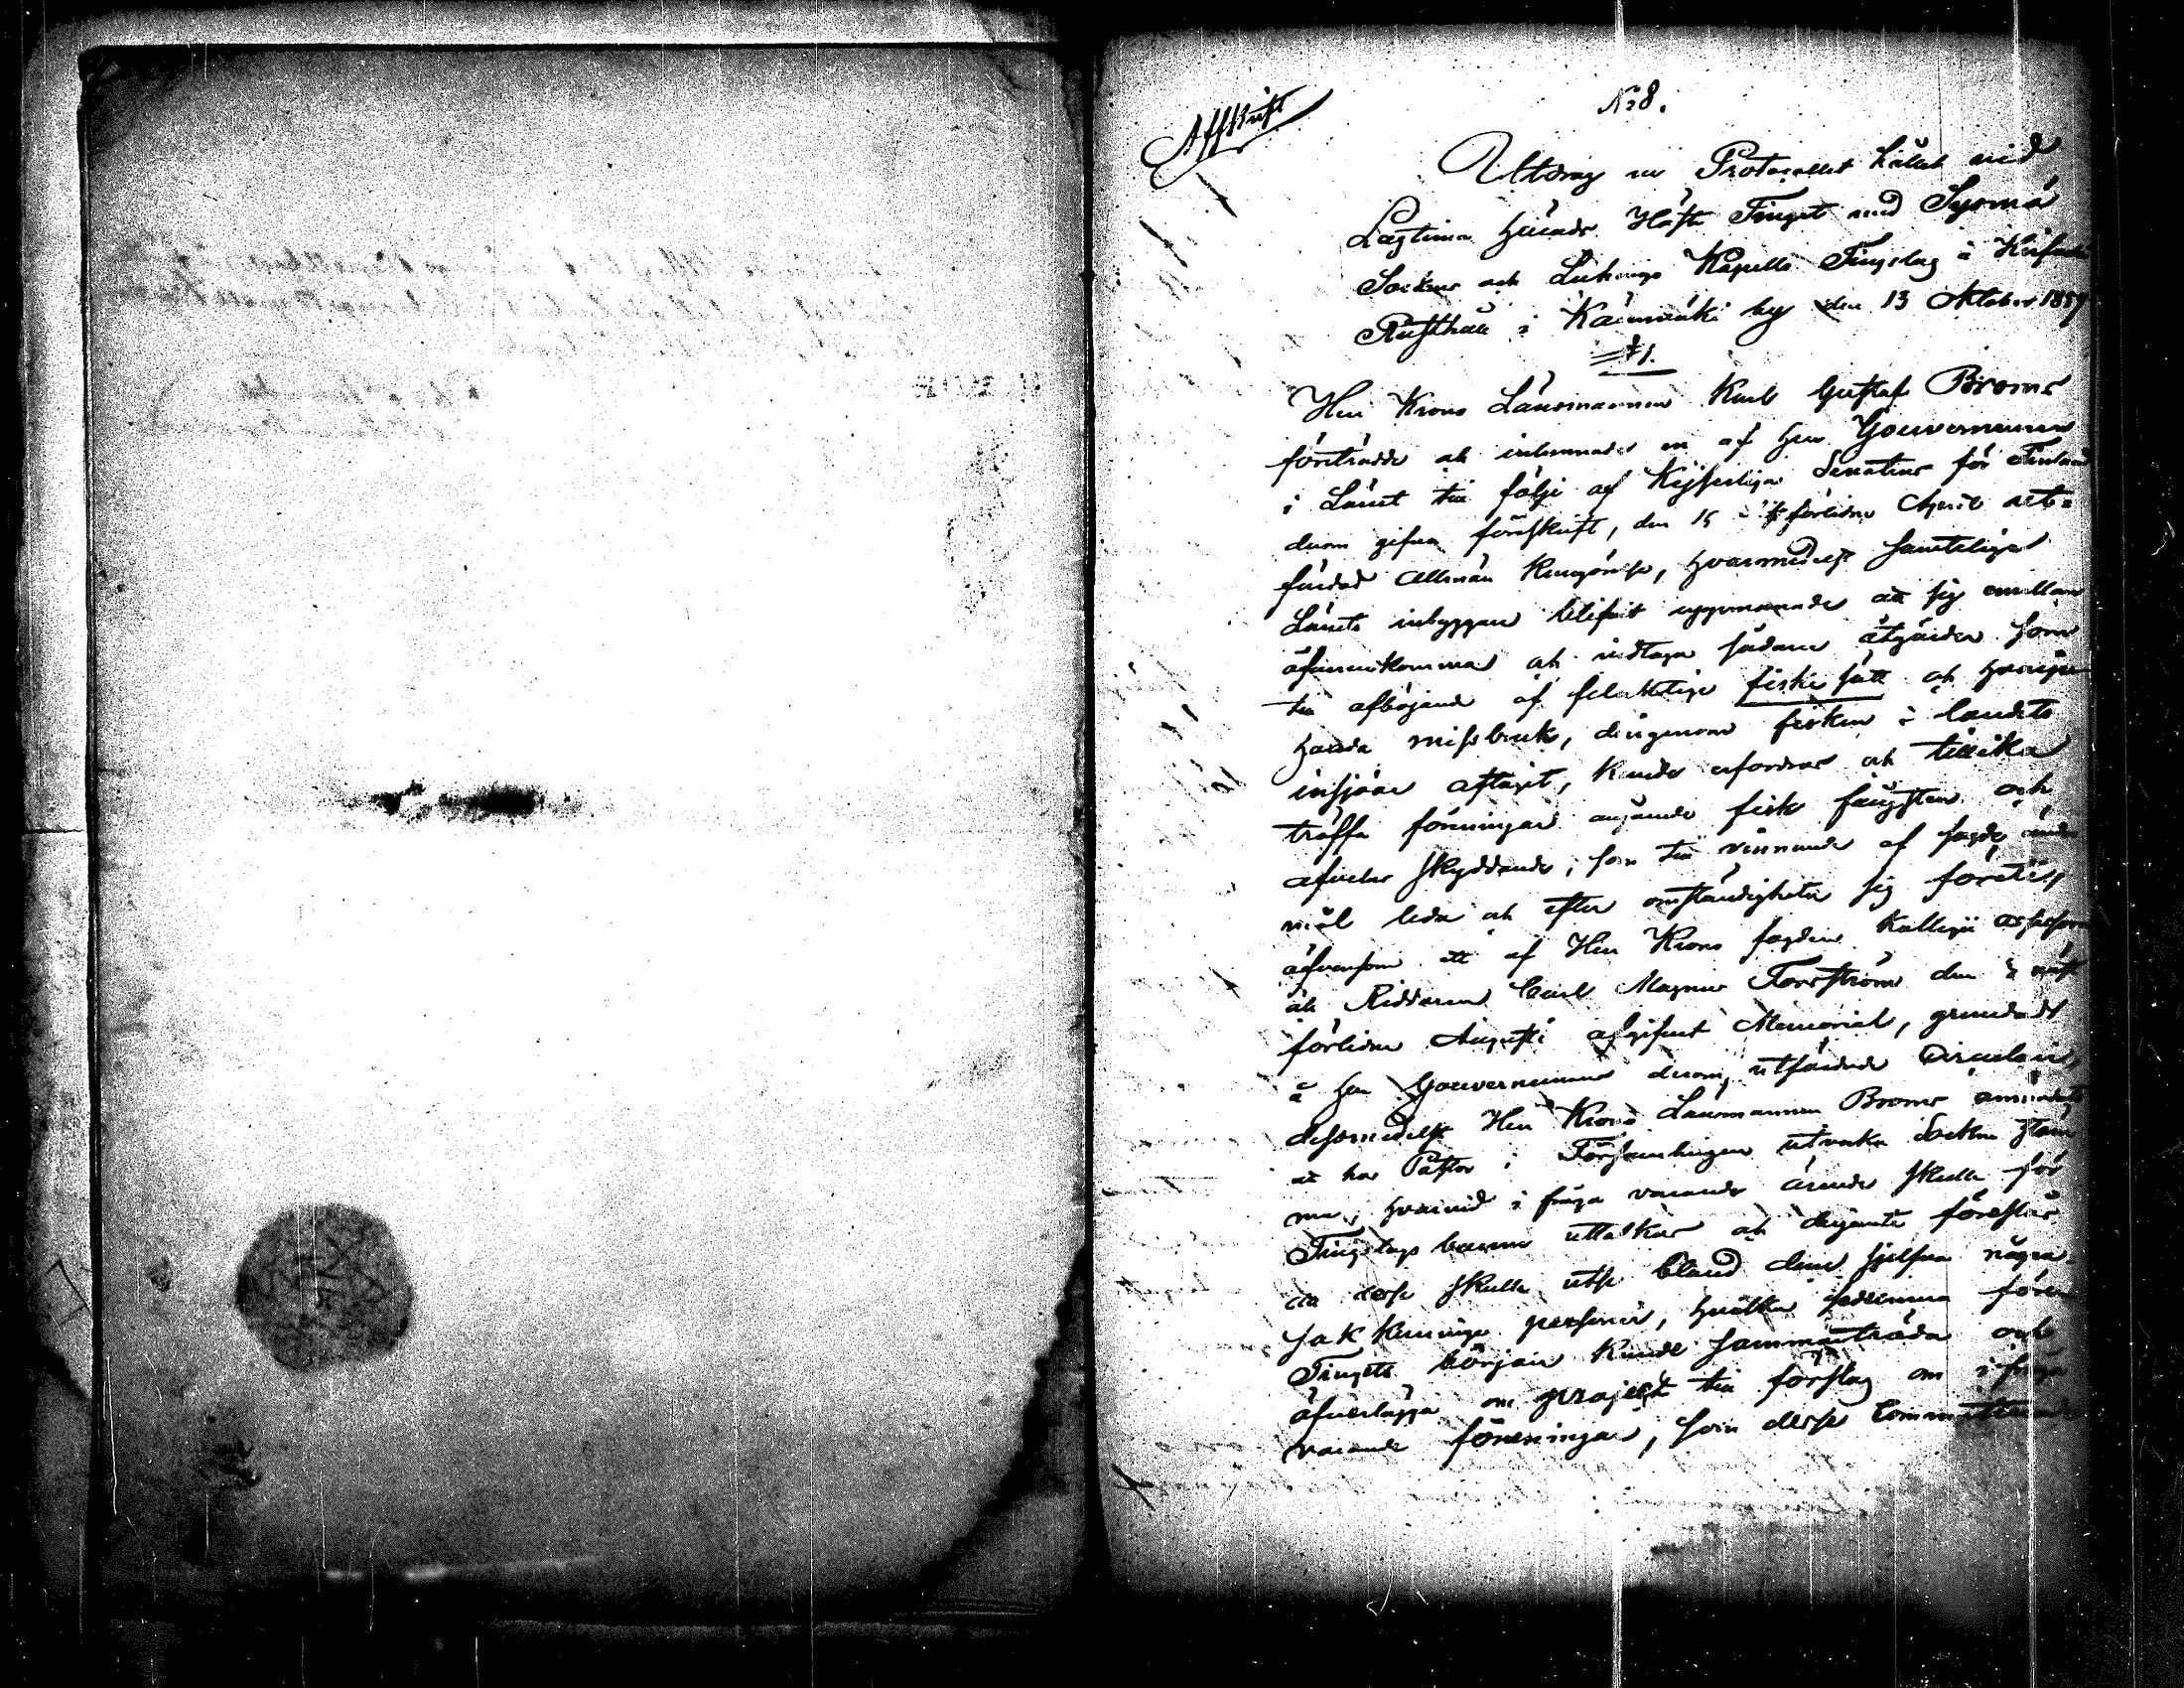 Afskrift
No 8.
Utdrag ur Protocollet hållet vid
Lagtima Härads Höste Tinget med Sysmä
Socken och Luhango Kapells Tingslag å
Rusthåll i Käenmäki by den 13 Oktober 1859
§ 1.
Herr Krono Länsmannen Karl Gustaf Broms
företrädde och inlemnade en af Herr Gouverneuren
i Länet till följe af Kejserliga Senatens för Finland
derom gifna föreskrift, den 15 förlidne April ut-
färdad Allmän Kungörelse, hvarmedelst samteliga
Länets inbyggare blifvit uppmanade att sig emellan
öfverenskomma och vidtaga sådana åtgärder som
till afböjande af felaktiga fiskesätt och
handa missbruk, dirigenom fisken i landets
insjöar aftagit, kunde erfordras och tillika
träffa föreningar angående fisk fångsten och
afvelns skyddande, som till vinnande af sagde ända
mål leda och efter omständigheter sig förete;
äfvensom ett af Herr Krono fogden Kollegii assessoren
och Riddaren Carl Magnus Forsström den
förlidne Augusti afgifvet Memorial, grundadt
å Herr Gouverneurens derom utfärdade Circulair,
dessmedelst Herr Krono Länsmannen Broms
att hos Pastor i Församlingen utverka Sockne stäm
ma, hvarvid i fråga varande ärende skulle för
Tingslags boerne uttolkas och dejemte föreslås
att desse skulle utse bland dem sjelfva några
sakkunnige personer, hvilka sedermera före
Tingets början kunde sammanträda och
öfverlägga om projekt till förslag om i fråga
varande föreningar, som desse Committerade